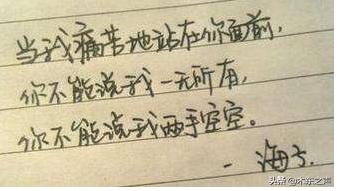 当我痛苦地站在你面前,
你不能说我一无所有,
你不能说我两手空空。
- 海子.
头条@木东之声